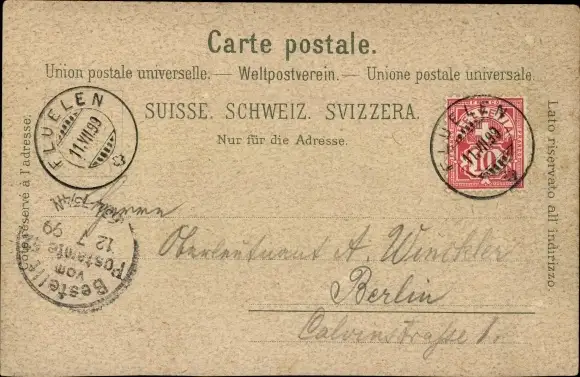 Carte postale.
Union postale universelle. — Weltpostverein. — Unione postale universale.
SUISSE. SCHWEIZ. SVIZZERA.
Nur für die Adresse.
Côté réservé à l'adresse.
Lato riservato all' indirizzo.
FLUELEN
11.VII.99
FLUELEN
11.VII.99
10
Bestellt
vom
Postamte
12 7 99
Oberleutnant A. Winckler
Berlin
Calvinstraße 1.